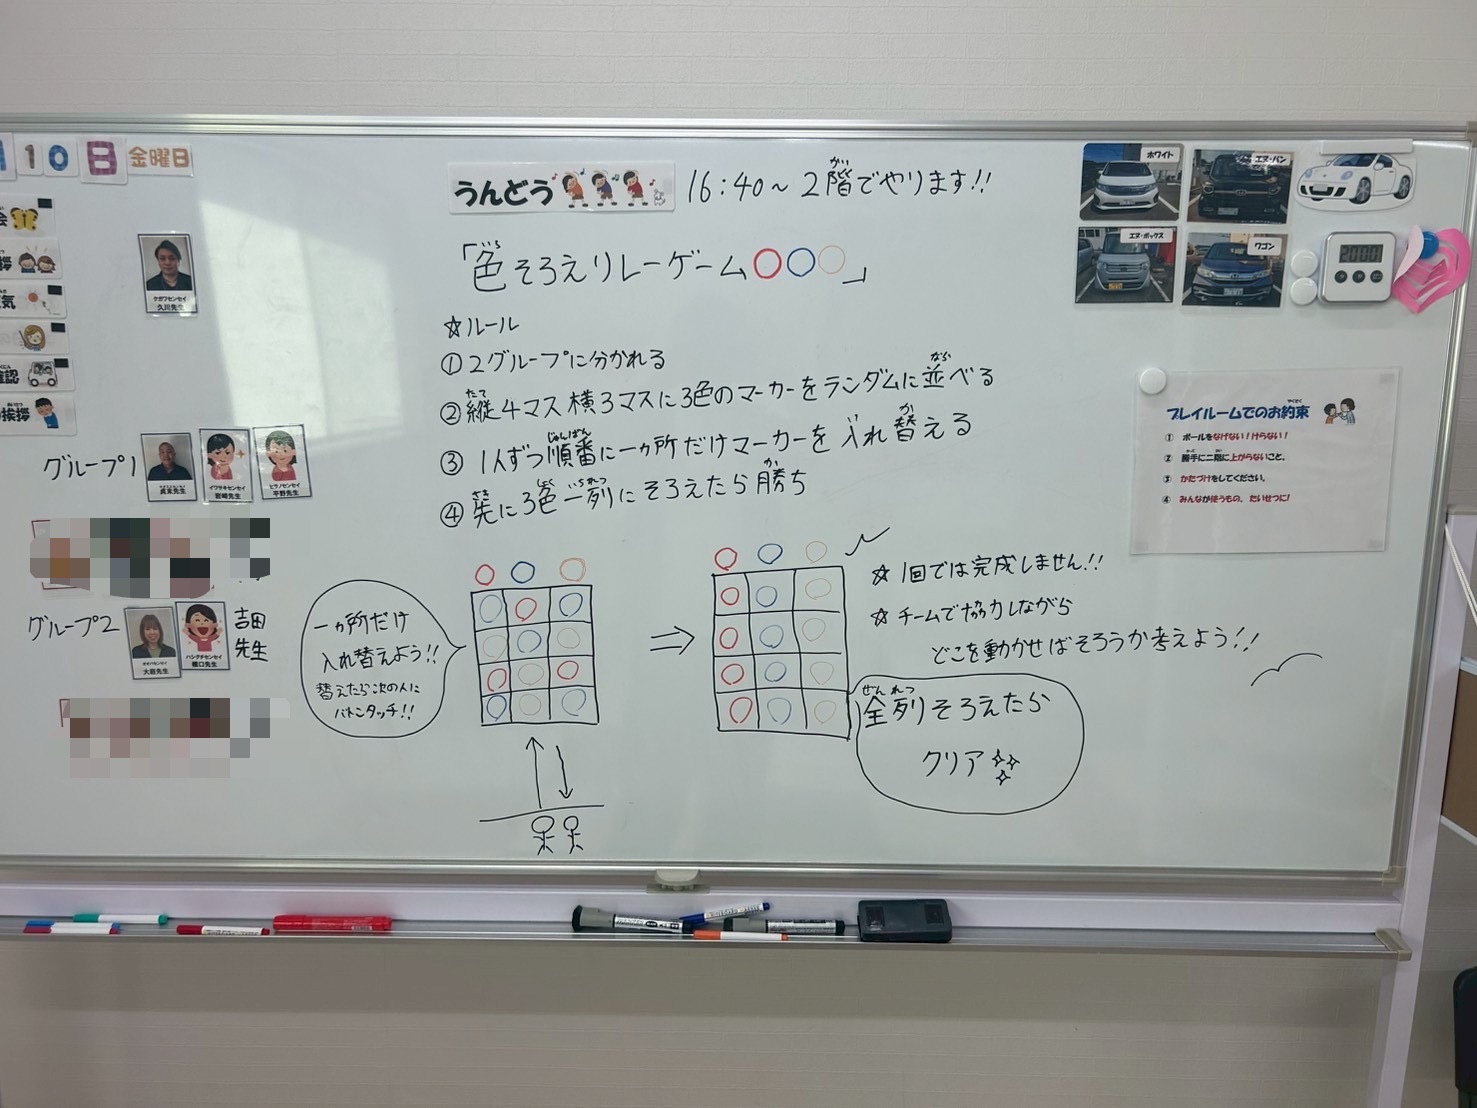 10日 金曜日
うんどう 16:40~ 2階でやります!!
がい
「色そろえリレーゲーム〇〇〇」
いろ
☆ルール
①2グループに分かれる
②縦4マス横3マスに3色のマーカーをランダムに並べる
たて
なら
③1人ずつ順番に一ヵ所だけマーカーを入れ替える
じゅんばん
い
か
④先に3色一列にそろえたら勝ち
さき
しょく
いちれつ
か
一ヵ所だけ
入れ替えよう!!
替えたら次の人に
バトンタッチ!!
☆1回では完成しません!!
☆チームで協力しながら
どこを動かせばそろうか考えよう!!
ぜんれつ
全列そろえたら
クリア
クガワセンセイ
久川先生
グループ1
貞末先生
イワサキセンセイ
岩崎先生
ヒラノセンセイ
平野先生
グループ2
大庭先生
ハシグチセンセイ
橋口先生
吉田
先生
挨拶
気
確認
挨拶
ホワイト
エヌ・バン
エヌ・ボックス
ワゴン
20:00
プレイルームでのお約束
やくそく
① ボールをなげない!けらない!
② 勝手に二階に上がらないこと。
③ かたづけをしてください。
④ みんなが使うもの、たいせつに!